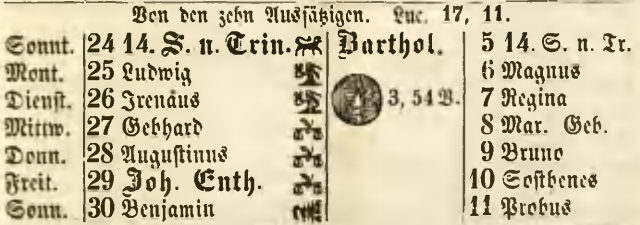 Von den zehn Aussätzigen. Luc. 17, 11.
Sonnt. 24 14. S. n. Trin. Barthol. 5 14. S. n. Tr.
Mont. 25 Ludwig 6 Magnus
Dienst. 26 Irenäus 3, 54 V. 7 Regina
Mittw. 27 Gebhard 8 Mar. Geb.
Donn. 28 Augustinus 9 Bruno
Freit. 29 Joh. Enth. 10 Sosthenes
Sonn. 30 Benjamin 11 Probus